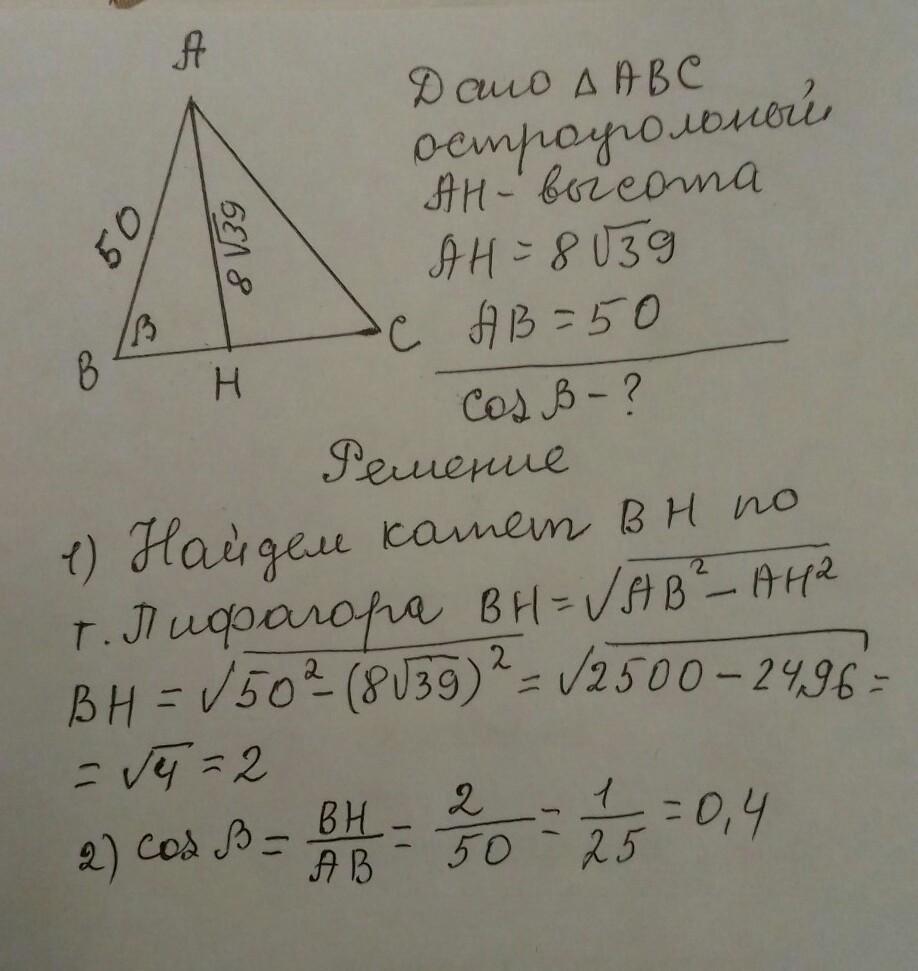 A
Дано △ABC
остроугольный
AH - высота
50
8√39
AH = 8√39
AB = 50
β
B
H
C
cos β - ?
Решение
1) Найдем катет BH по
т. Пифагора BH = √(AB² - AH²)
BH = √(50² - (8√39)²) = √(2500 - 2496) =
= √4 = 2
2) cos β = BH/AB = 2/50 = 1/25 = 0,4